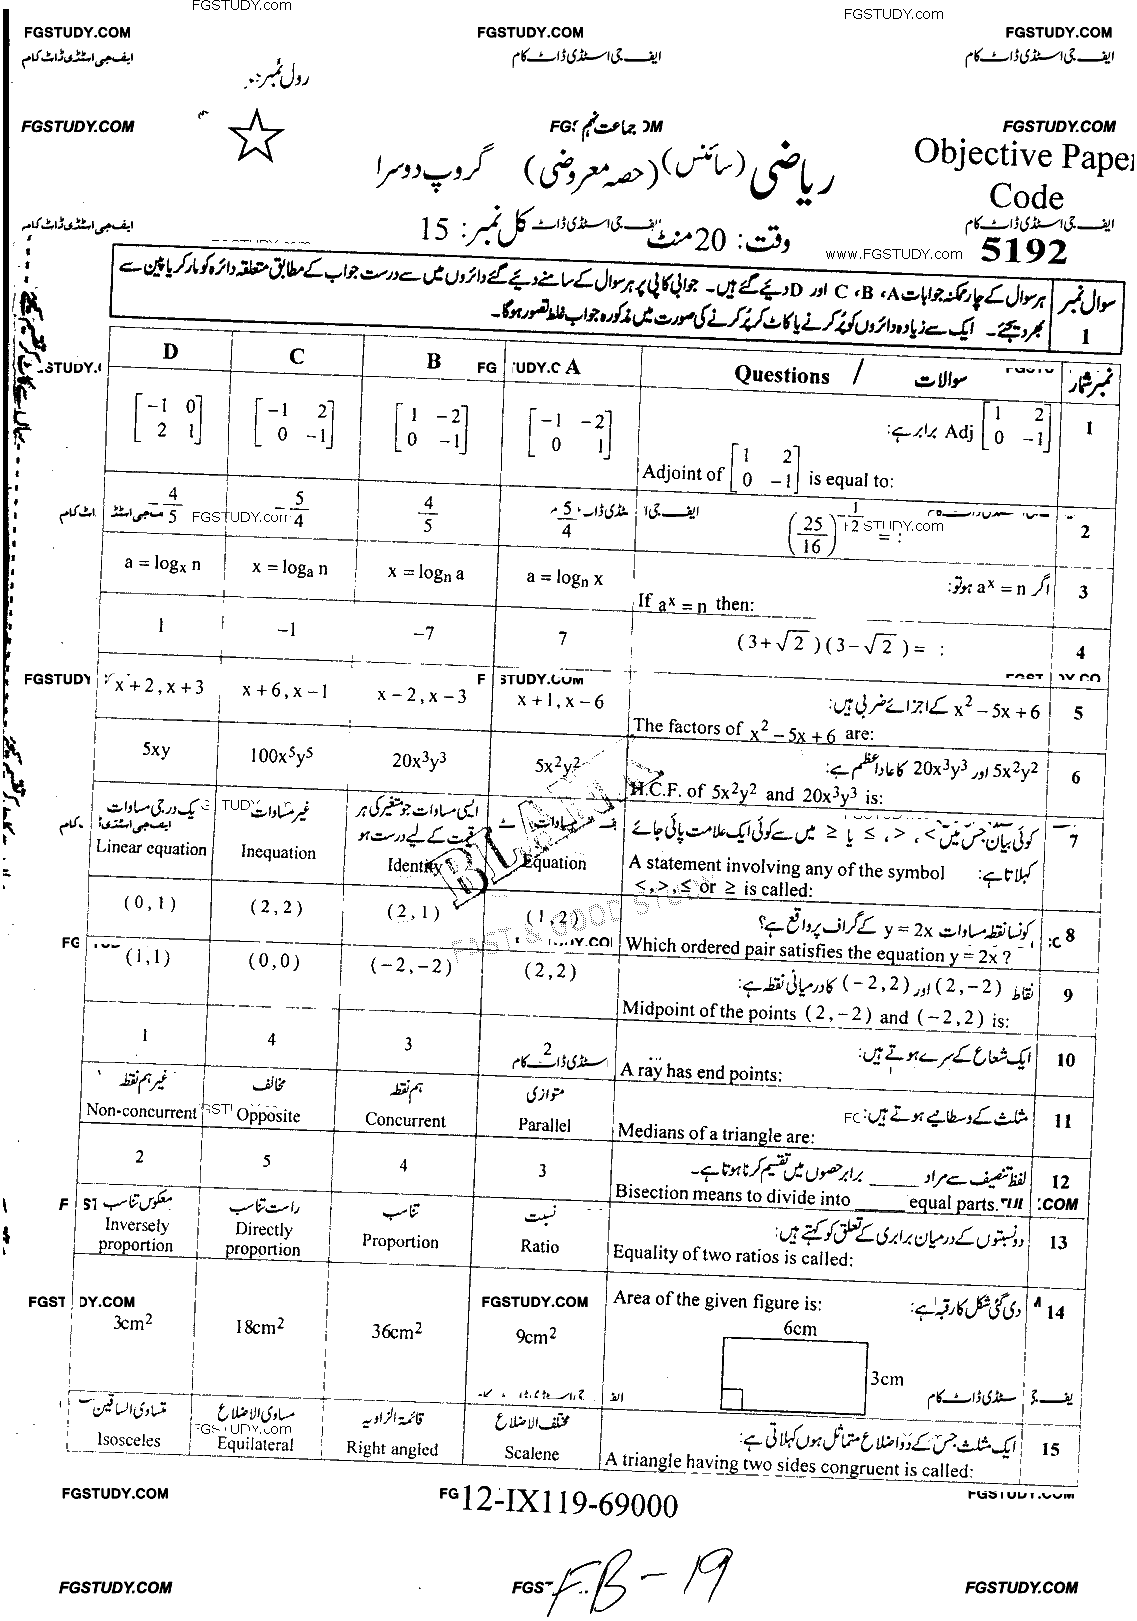 FGSTUDY.COM
FGSTUDY.com
FGSTUDY.COM FGSTUDY.COM FGSTUDY.COM
ایف جی اسٹڈی ڈاٹ کام ایف جی اسٹڈی ڈاٹ کام ایف جی اسٹڈی ڈاٹ کام
رول نمبر
FGSTUDY.COM جماعت نہم FGSTUDY.COM
ریاضی (سائنس) (حصہ معروضی) گروپ دوسرا
Objective Paper
Code
5192
ایف جی اسٹڈی ڈاٹ کام
وقت: 20 منٹ کل نمبر: 15
www.FGSTUDY.com
سوال نمبر 1
ہر سوال کے چار ممکنہ جوابات A، B، C اور D دیئے گئے ہیں۔ جوابی کاپی پر ہر سوال کے سامنے دیئے گئے دائروں میں سے درست جواب کے مطابق متعلقہ دائرہ کو مارکر یا پین سے
بھر دیجئے۔ ایک سے زیادہ دائروں کو پُر کرنے یا کاٹ کر پُر کرنے کی صورت میں مذکورہ جواب غلط تصور ہوگا۔
D C B A Questions / سوالات نمبر شمار
1 Adj [1 2; 0 −1] برابر ہے:
Adjoint of [1 2; 0 −1] is equal to:
[−1 0; 2 1] [−1 2; 0 −1] [1 −2; 0 −1] [−1 −2; 0 1]
2 (25/16)^−1/2 = :
−4/5 −5/4 4/5 5/4
FGSTUDY.com
3 اگر aˣ = n ہو تو:
If aˣ = n then:
a = logₓ n x = logₐ n x = logₙ a a = logₙ x
4 (3+√2)(3−√2) = :
1 −1 −7 7
5 x² − 5x + 6 کے اجزائے ضربی ہیں:
The factors of x² − 5x + 6 are:
x + 2, x + 3 x + 6, x − 1 x − 2, x − 3 x + 1, x − 6
6 5x²y² اور 20x³y³ کا عاد اعظم ہے:
H.C.F. of 5x²y² and 20x³y³ is:
5xy 100x⁵y⁵ 20x³y³ 5x²y²
7 کوئی بیان جس میں <، >، ≤ یا ≥ میں سے کوئی ایک علامت پائی جائے کہلاتا ہے:
A statement involving any of the symbol
<, >, ≤ or ≥ is called:
یک درجی مساوات غیر مساوات ایسی مساوات جو متغیر کی ہر قیمت کے لیے درست ہو مساوات
Linear equation Inequation Identity Equation
8 کونسا نقطہ مساوات y = 2x کے گراف پر واقع ہے؟
Which ordered pair satisfies the equation y = 2x ?
(0, 1) (2, 2) (2, 1) (1, 2)
9 نقاط (2, −2) اور (−2, 2) کا درمیانی نقطہ ہے:
Midpoint of the points (2, −2) and (−2, 2) is:
(1, 1) (0, 0) (−2, −2) (2, 2)
10 ایک شعاع کے سرے ہوتے ہیں:
A ray has end points:
1 4 3 2
11 مثلث کے وسطانیے ہوتے ہیں:
Medians of a triangle are:
غیر ہم نقطہ مخالف ہم نقطہ متوازی
Non-concurrent Opposite Concurrent Parallel
12 لفظ تنصیف سے مراد ____ برابر حصوں میں تقسیم کرنا ہوتا ہے۔
Bisection means to divide into ____ equal parts.
2 5 4 3
13 دو نسبتوں کے درمیان برابری کے تعلق کو کہتے ہیں:
Equality of two ratios is called:
معکوس تناسب راست تناسب تناسب نسبت
Inversely proportion Directly proportion Proportion Ratio
14 دی گئی شکل کا رقبہ ہے:
Area of the given figure is:
6cm
3cm
3cm² 18cm² 36cm² 9cm²
FGSTUDY.COM FGSTUDY.COM
15 ایک مثلث جس کے دو اضلاع متماثل ہوں کہلاتی ہے:
A triangle having two sides congruent is called:
متساوی الساقین مساوی الاضلاع قائمۃ الزاویہ مختلف الاضلاع
Isosceles Equilateral Right angled Scalene
FGSTUDY.COM FG 12-IX119-69000 FGSTUDY.COM
F.B-19
FGSTUDY.COM FGST FGSTUDY.COM